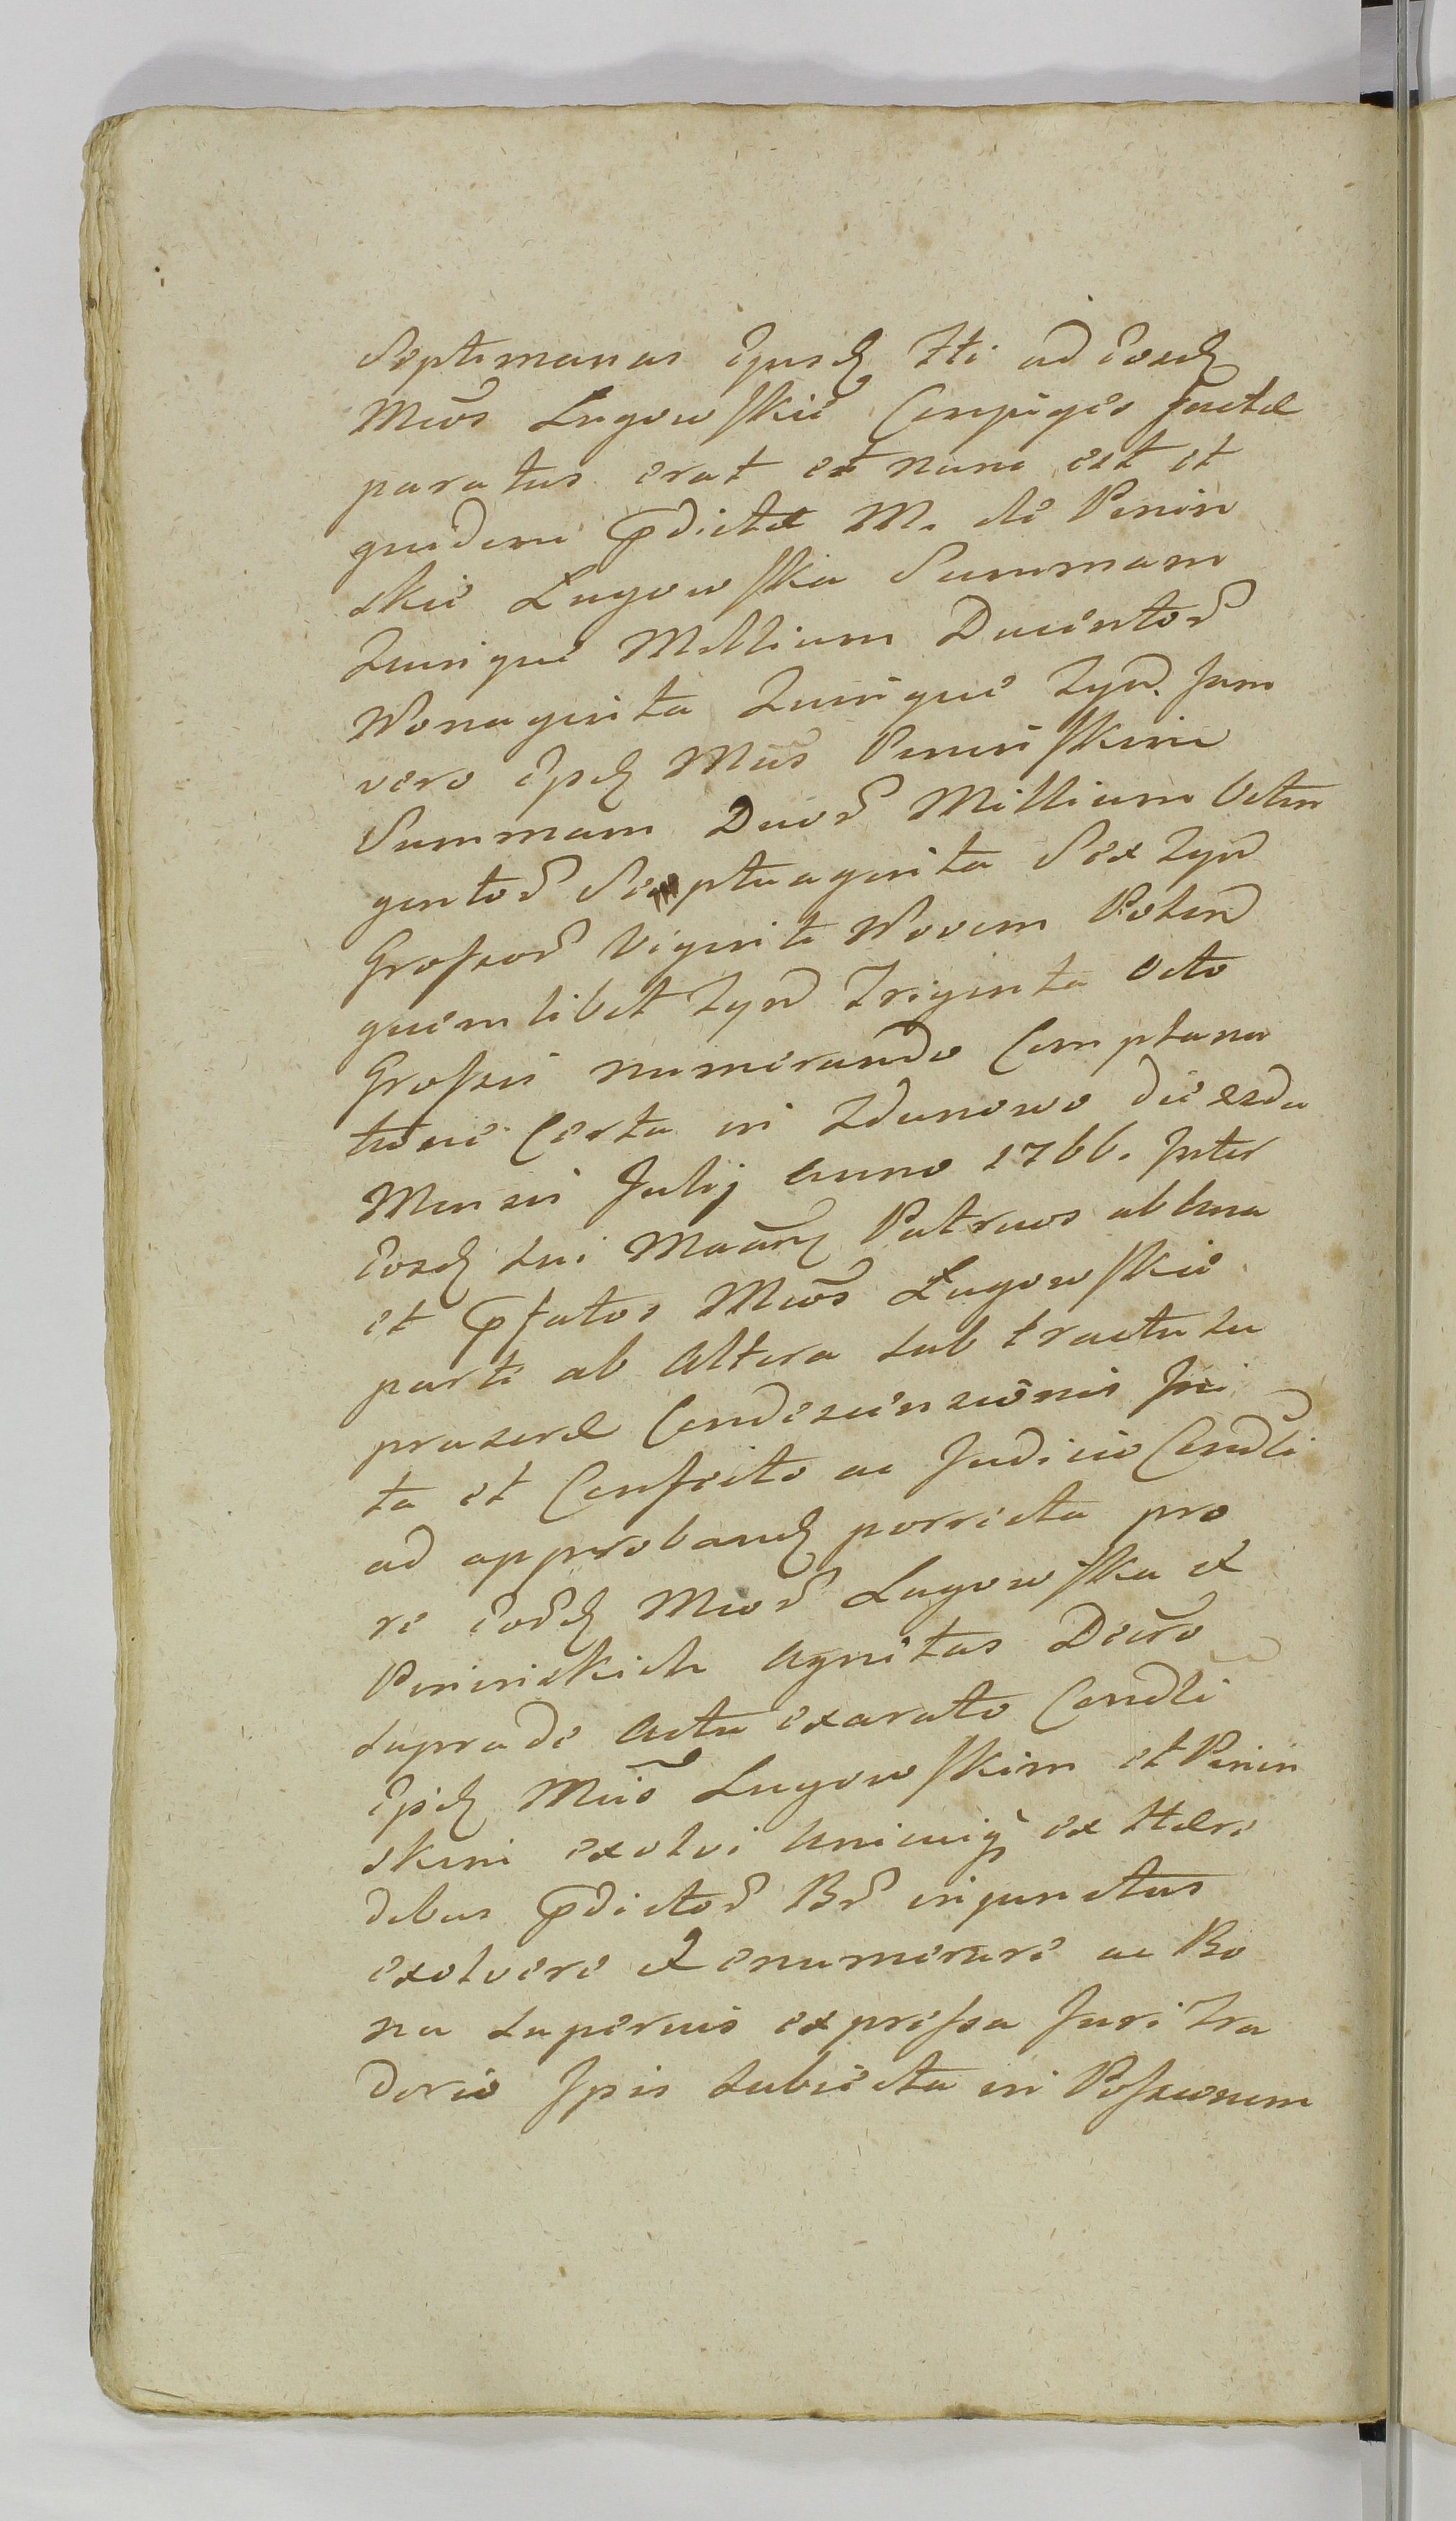 Septimanas Ejusd Tti ad Eosd
Mcos Lugowskie Conjuges factæ
paratus erat et nunc est et
quidem p̱dictæ M. de Penin
skie Lugowska Summam
Quinque Millium Ducentor
Nonaginta Quinque Tyn. Jam
vero Epsd Mcis Peninskim
Summam Duor Millium Octin
gentor Septuaginta Sex Tyn
Grossor Viginti Novem Polon
quemlibet Tyn Triginta Octo
Grossis numerando Complana
tione Certa in Zdunowo die 22da
Mensis Julij Anno 1766. Inter
Eosd sui Patruos ab Una
et p̱fatos Mcos Lugowskie
parte ab Altera sub tractu su
præsere Condescensionis Ini
ta et Confecto ac Judicio Condli
ad approband porrecta pro
re Eord Mcor Lugowska et
Peninskich Agnitas Decro
supra de Actu exarato Condli
Epsd Mcis Lugowskim et Penin
skim exolvi Unicuiq ex Hære
dibus p̱dictor Br injunctus
exolvere et enumerare ac Bo
na superius expressa Juri Tra
dorio Ipis subiecta in Possionem